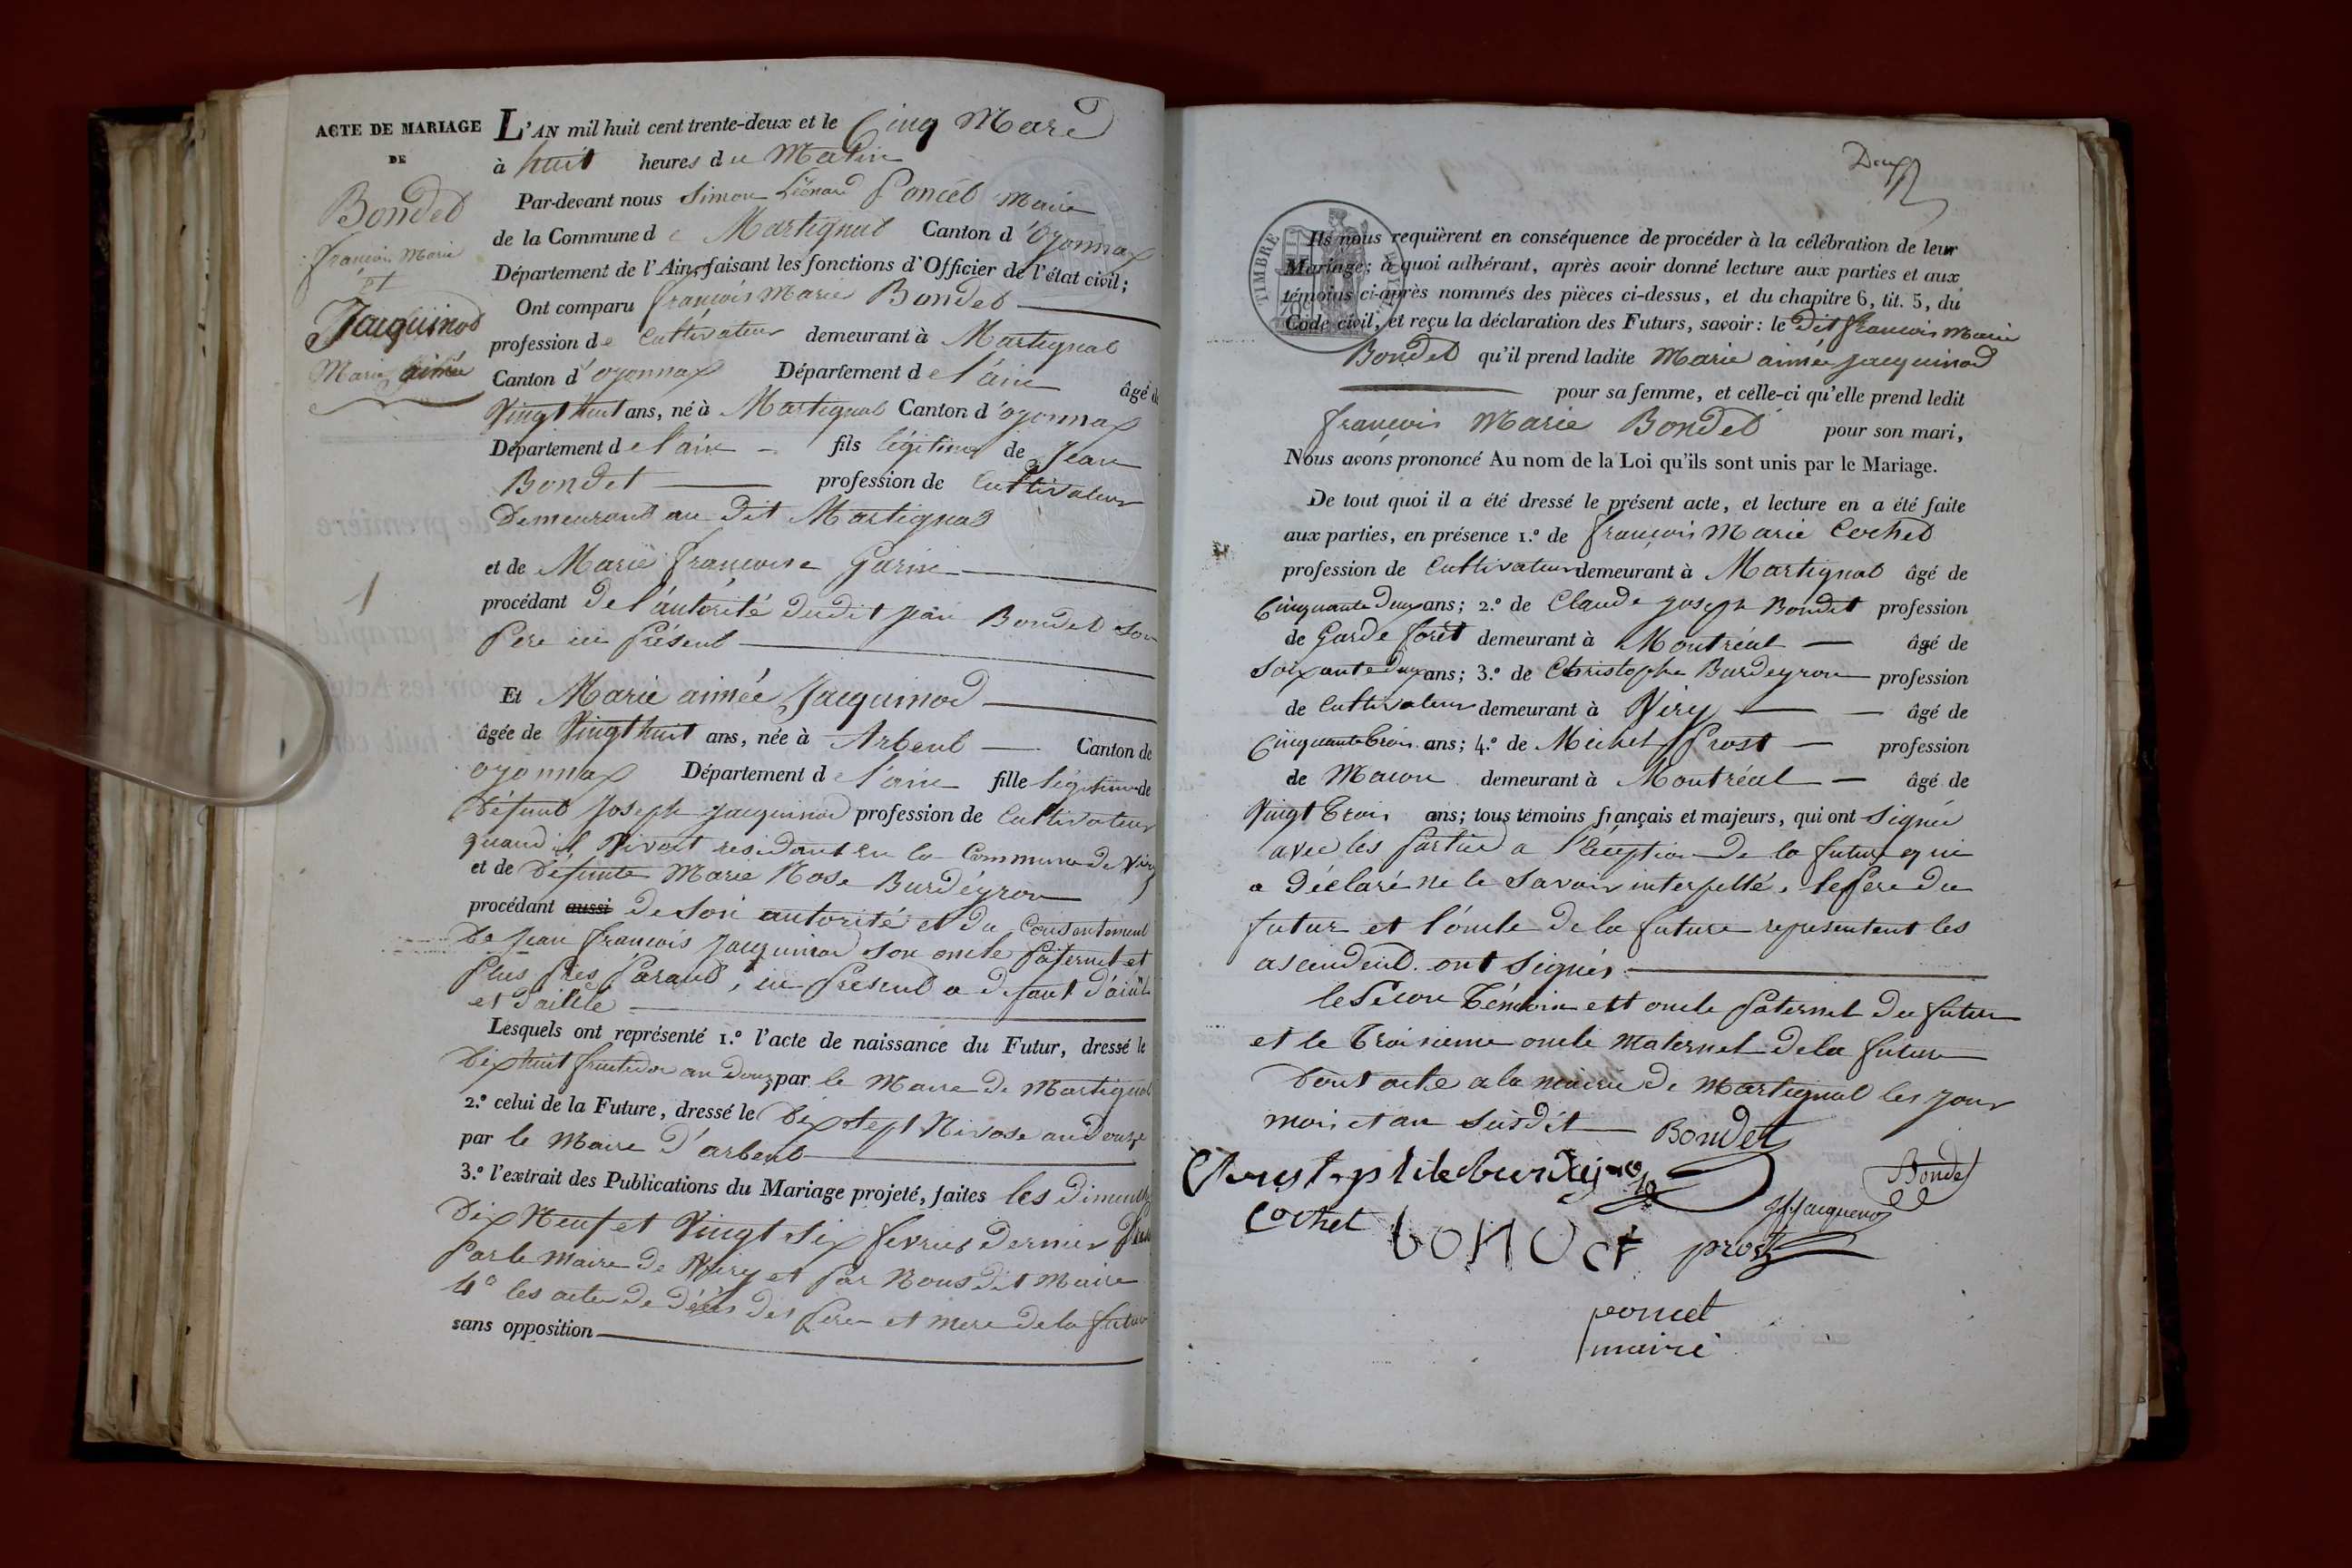 ACTE DE MARIAGE
DE
Bondet
françois Marie
et
Jacquinod
Marie aimée
1
L'AN mil huit cent trente-deux et le Cinq Mars
à huit heures du Matin
Par-devant nous Simon Léonard Poncet Maire
de la Commune de Martignat Canton d'oyonnax
Département de l'Ain, faisant les fonctions d'Officier de l'état civil;
Ont comparu françois Marie Bondet
profession de Cultivateur demeurant à Martignat
Canton d'oyonnax Département de l'ain âgé de
Vingt huit ans, né à Martignat Canton d'oyonnax
Département de l'ain fils légitime de Jean
Bondet profession de Cultivateur
Demeurant au dit Martignat
et de Marie françoise Garin
procédant De l'autorité dudit jean Bondet son
Pere ici Présent
Et Marie aimée Jacquinod
âgée de Vingt huit ans, née à Arbent Canton de
oyonnax Département de l'ain fille légitime de
Défunt Joseph jacquinod profession de Cultivateur
quand il Vivait residant en la Commune de Viry
et de Défunte Marie Rose Burdeyron
procédant aussi de son autorité et du Consentement
De jean françois jacquinod son oncle Paternel et
Plus Près Parant, ici Présent a defaut d'aiul
et d'aiule
Lesquels ont représenté 1.º l'acte de naissance du Futur, dressé le
Dix huit fructidor an douz par le Maire de Martignat
2.º celui de la Future, dressé le Dix sept Nivose an douze
par le Maire d'arbent
3.º l'extrait des Publications du Mariage projeté, faites les dimanch
Dix Neuf et Vingt Six fevrier dernier
Par le Maire de Viry et par Nous dit Maire
4º les actes de décès des Pere et mere de la future
sans opposition
Deux
TIMBRE ROYAL
70c
Ils nous requièrent en conséquence de procéder à la célébration de leur
Mariage; à quoi adhérant, après avoir donné lecture aux parties et aux
témoins ci-après nommés des pièces ci-dessus, et du chapitre 6, tit. 5, du
Code civil, et reçu la déclaration des Futurs, savoir: le Dit françois Marie
Bondet qu'il prend ladite Marie aimée jacquinod
pour sa femme, et celle-ci qu'elle prend ledit
françois Marie Bondet pour son mari,
Nous avons prononcé Au nom de la Loi qu'ils sont unis par le Mariage.
De tout quoi il a été dressé le présent acte, et lecture en a été faite
aux parties, en présence 1.º de françois Marie Cochet
profession de Cultivateur demeurant à Martignat âgé de
Cinquante Deux ans; 2.º de Claude joseph Bondet profession
de Garde forêt demeurant à Montréal âgé de
Soixante deux ans; 3.º de Christophe Burdeyron profession
de Cultivateur demeurant à Viry âgé de
Cinquante trois ans; 4.º de Michel Prost profession
de Macon demeurant à Montréal âgé de
Vingt trois ans; tous témoins français et majeurs, qui ont signé
avec les Parties a l'éception de la future qui
a Déclaré ne le Savoir interpellé, le Pere du
futur et l'oncle de la future representent les
ascendent ont signés
le Secon Témoin est oncle Paternel du futur
et le troisieme oncle Maternel de la future
Dont acte a la mairie de Martignat les jour
mois et an susdit Bondet
Christophe burdeyron
Bondet
Cochet
jf jacquenod
bonDet
prost
poncet
maire